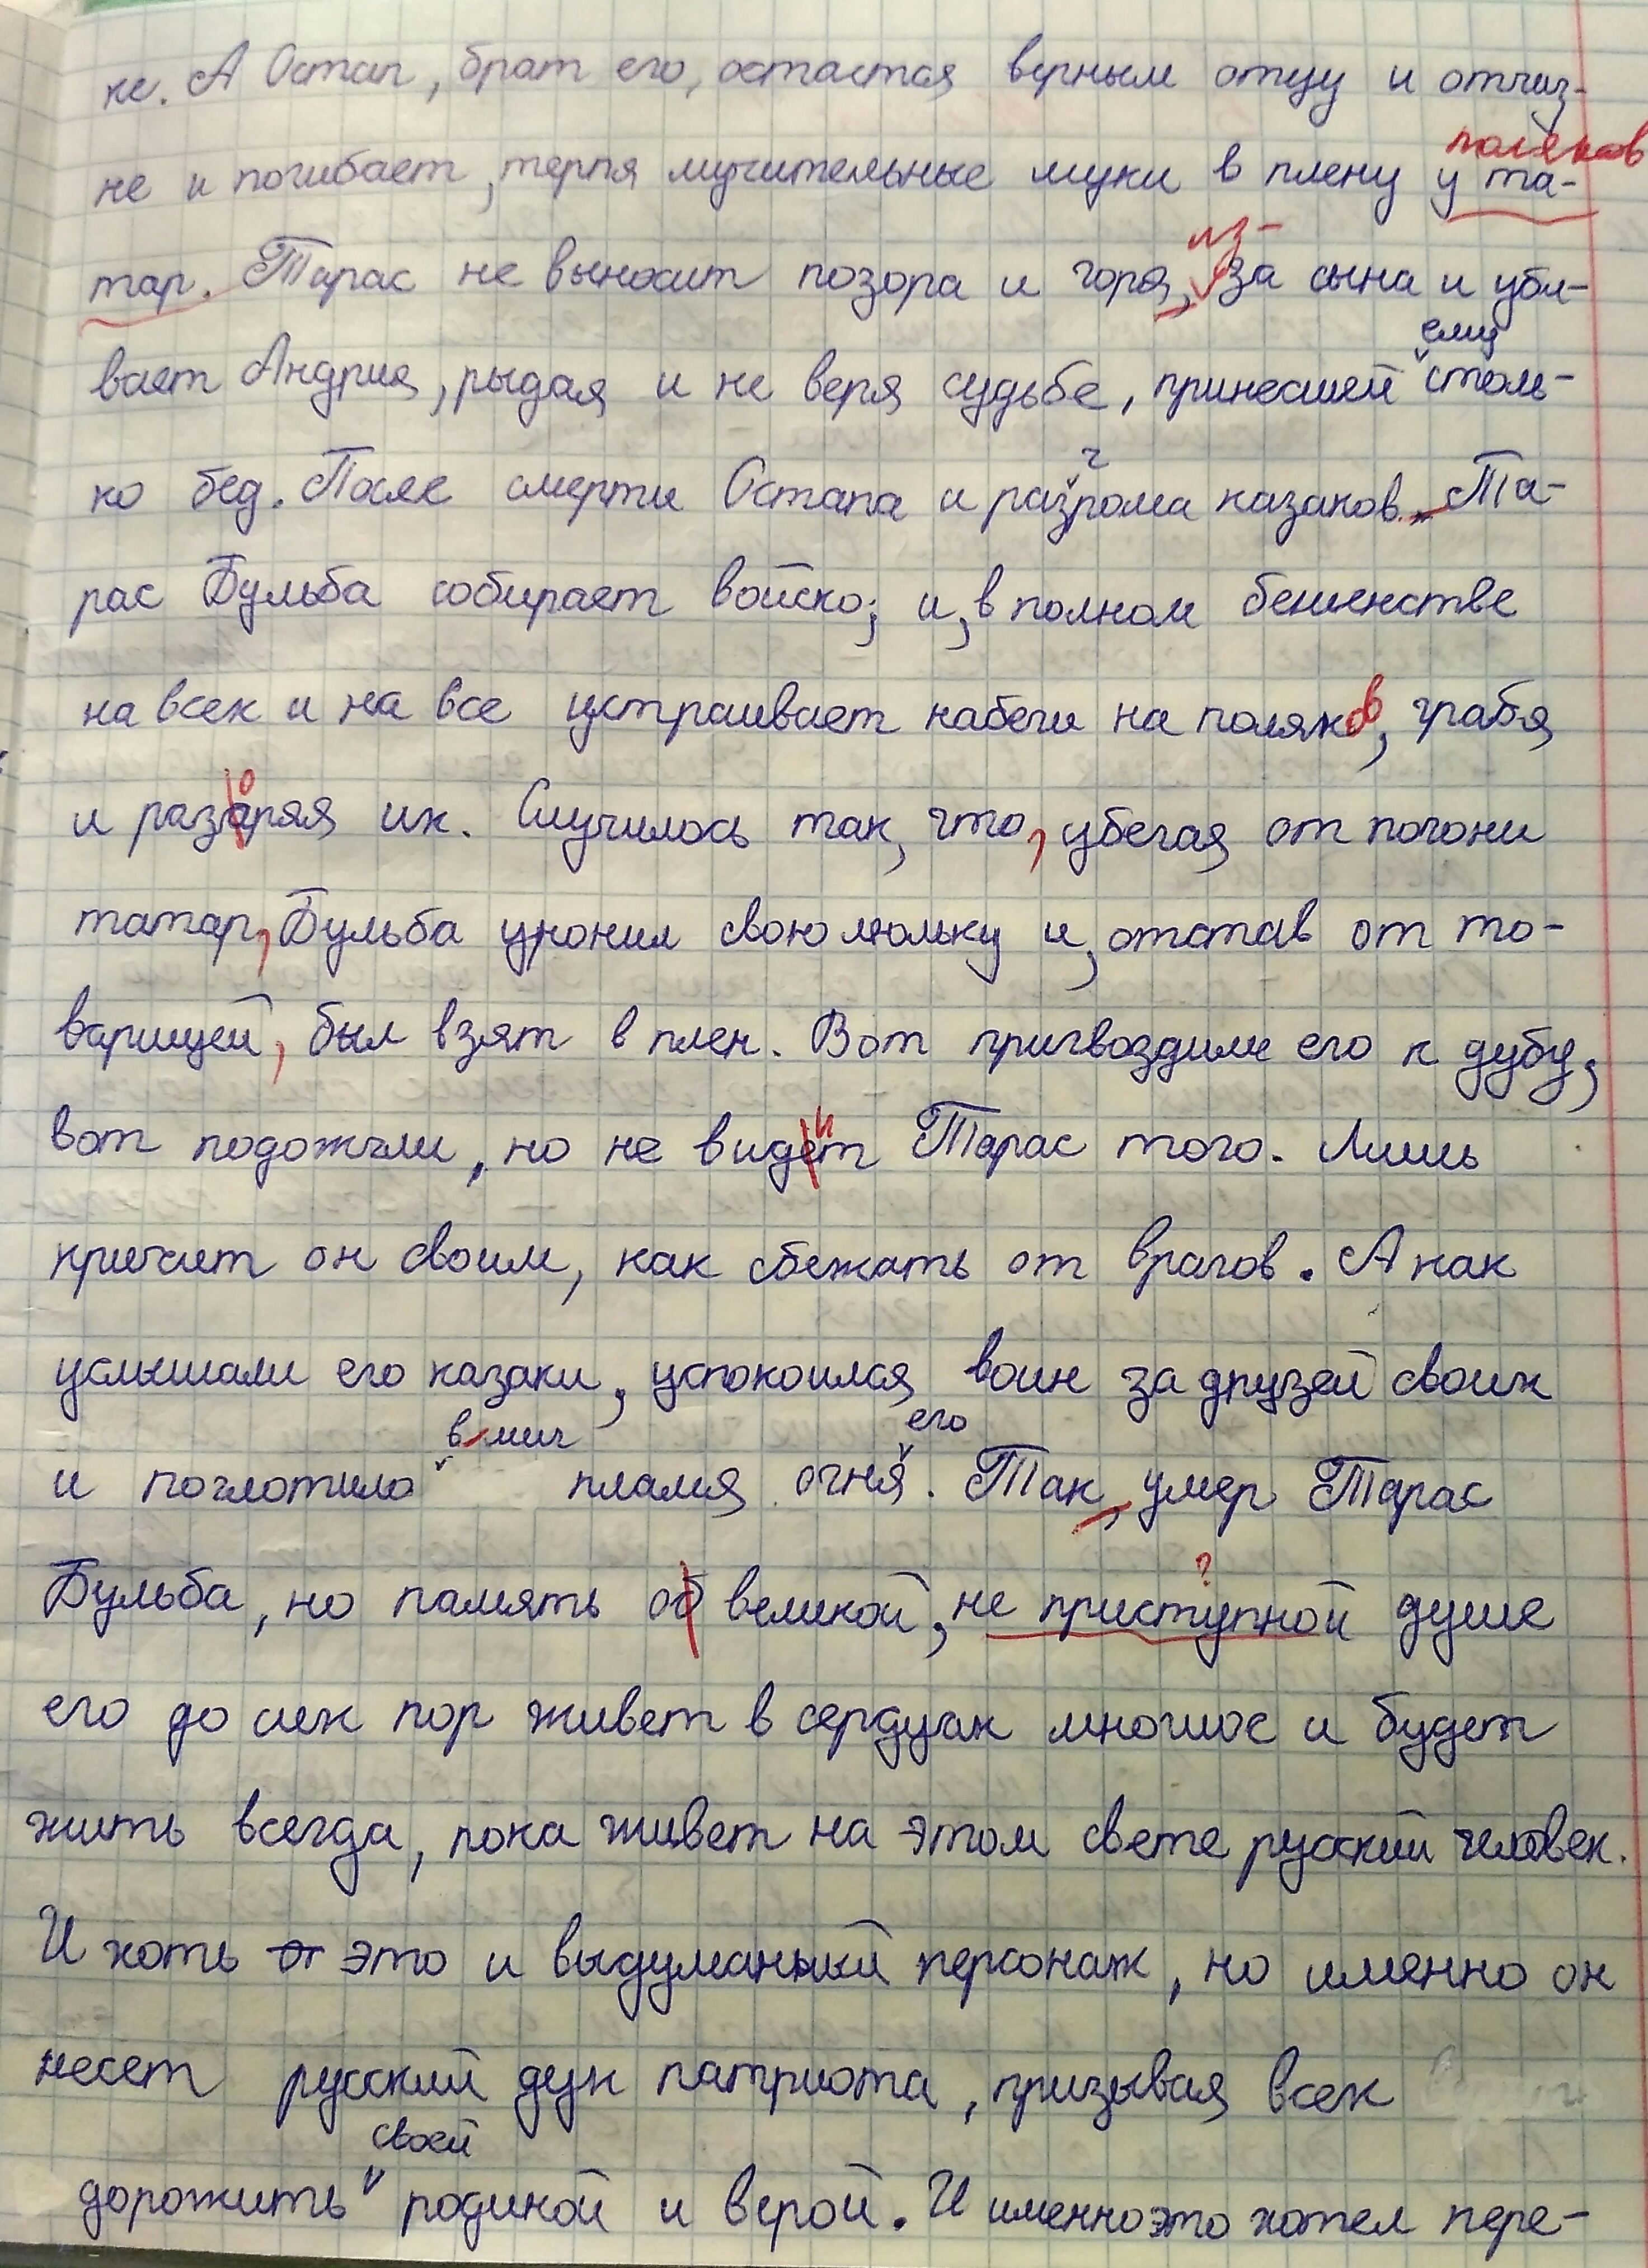 ке. А Остап, брат его, остается верным отцу и отчиз-
поляков
не и погибает, терпя мучительные муки в плену у та-
из-
тар. Тарас не выносит позора и горя, за сына и уби-
ему
вает Андрия, рыдая и не веря судьбе, принесшей столь-
г
ко бед. После смерти Остапа и разрома казаков Та-
рас Бульба собирает войско; и, в полном бешенстве
на всех и на все устраивает набеги на поляков, грабя
о
и разаряя их. Случилось так, что, убегая от погони
татар, Бульба уронил свою люльку и, отстав от то-
варищей, был взят в плен. Вот пригвоздили его к дубу,
и
вот подожгли, но не видет Тарас того. Лишь
кричит он своим, как сбежать от врагов. А как
услышали его казаки, успокоился воин за друзей своих
в миг его
и поглотило пламя огня. Так, умер Тарас
?
Бульба, но память об великой, не приступной душе
его до сих пор живет в сердцах многих и будет
жить всегда, пока живет на этом свете русский человек.
И хоть от это и выдуманный персонаж, но именно он
несет русский дух патриота, призывая всех
своей
дорожить родиной и верой. И именно это хотел пере-